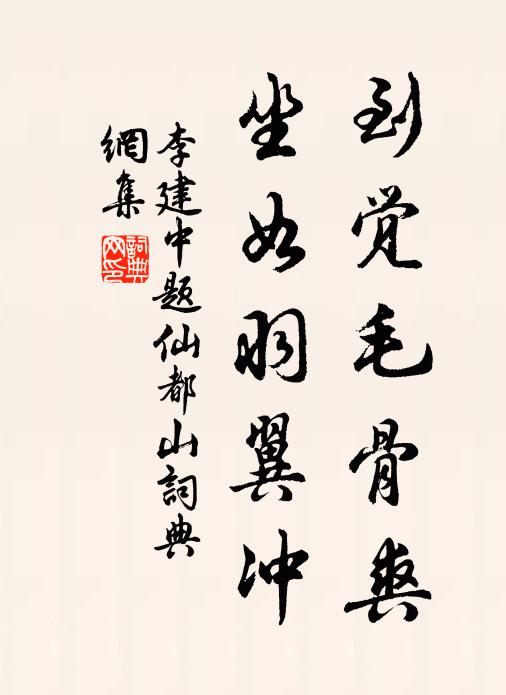 到觉毛骨爽
坐如羽翼冲
李建中题仙都山词典
網集
詞典网印